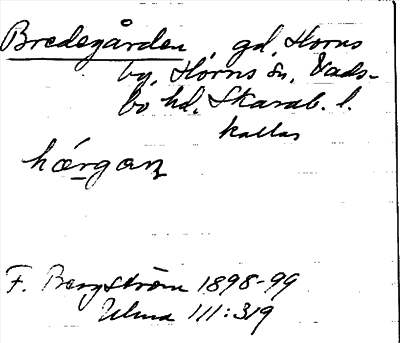 Bredegården, gd, Horns
by, Horns sn, Vads-
bo hd, Skarab. l.
kallas
hórgaɳ
F. Bergström 1898-99
Ulma 111:319